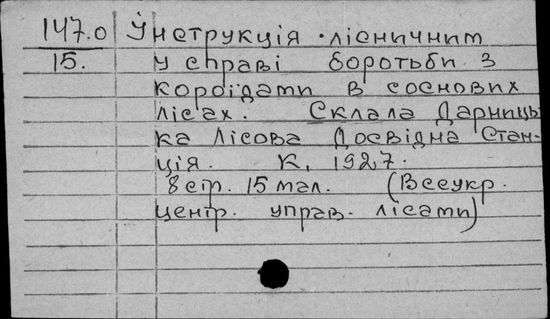 147.0 Інструкція лісничим
15. у справі боротьби з
короїдами в соснових
лісах. Склала Дарниць-
ка Лісова Досвідна Стан-
ція. К, 1927.
8 стр. 15 мал. (Всеукр.
центр. управ. лісами)